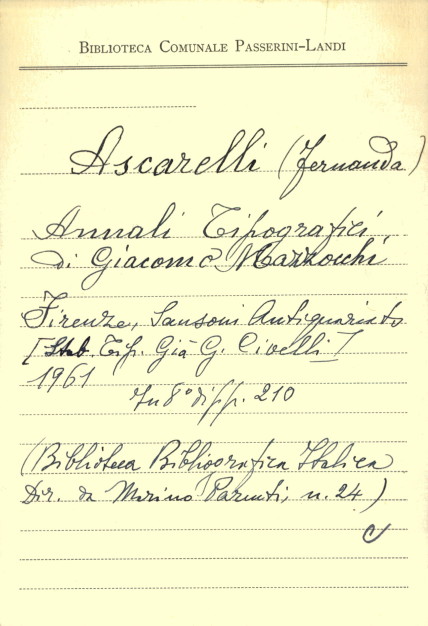 BIBLIOTECA COMUNALE PASSERINI-LANDI
Ascarelli (Fernanda)
Annali Tipografici
di Giacomo Mazzocchi
Firenze, Sansoni Antiquariato
[Stab. Tip. Già G. Civelli]
1961
In 8° di pp. 210
(Biblioteca Bibliografica Italica
Dir. da Marino Parenti, n. 24)